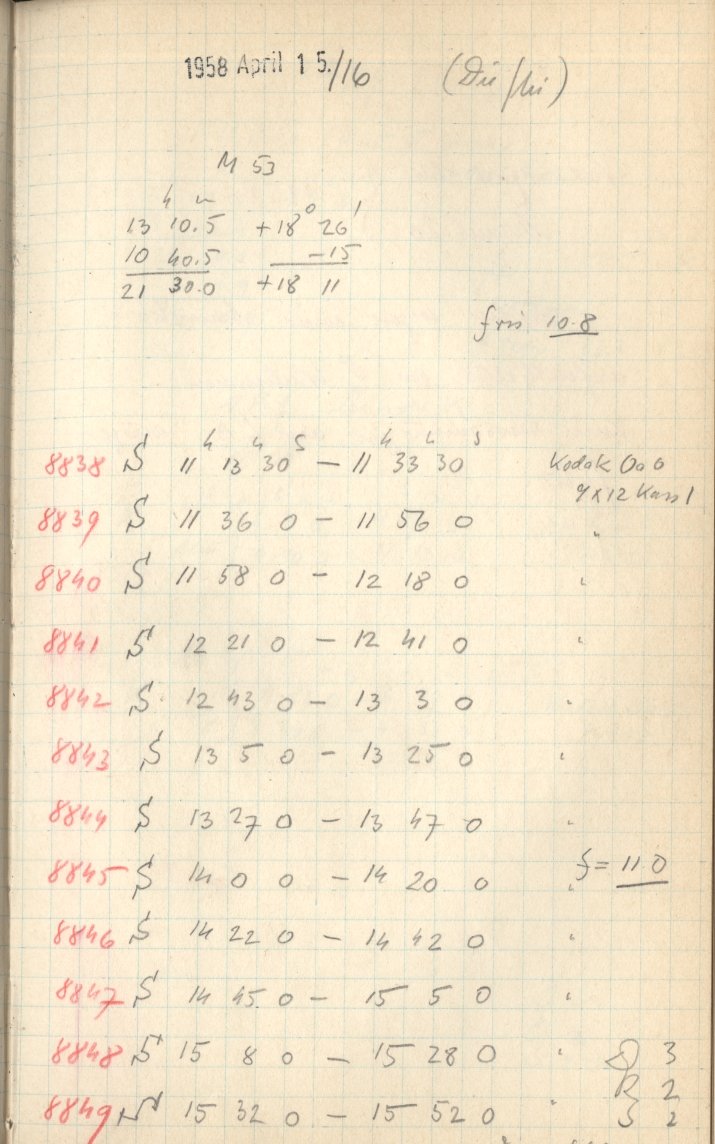 1958 April 15./16
M 53
h m
13 10.5 +18° 26'
10 40.5 -15
21 30.0 +18 11
10.8
h m s h m s
8838 S 11 13 30 — 11 33 30 Kodak OaO
9x12 Kass 1
8839 S 11 36 0 — 11 56 0 "
8840 S 11 58 0 — 12 18 0 "
8841 S 12 21 0 — 12 41 0 "
8842 S 12 43 0 — 13 3 0 "
8843 S 13 5 0 — 13 25 0 "
8844 S 13 27 0 — 13 47 0 "
f = 11.0
8845 S 14 0 0 — 14 20 0 "
8846 S 14 22 0 — 14 42 0 "
8847 S 14 45 0 — 15 5 0 "
8848 S 15 8 0 — 15 28 0 " D 3
R 2
8849 S 15 32 0 — 15 52 0 " S 2